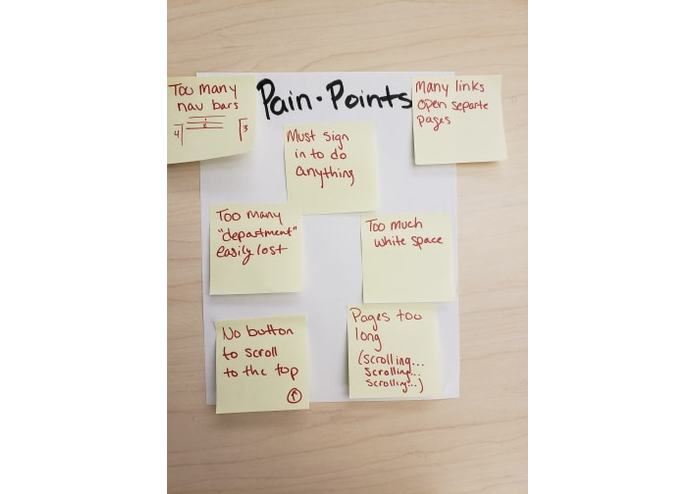 Pain-Points
Too Many
nav bars
1
2
4
3
Many links
open separte
pages
Must sign
in to do
anything
Too many
"department"
easily lost
Too much
white space
No button
to scroll
to the top
Pages too
long
(scrolling...
Scrolling...
Scrolling...)